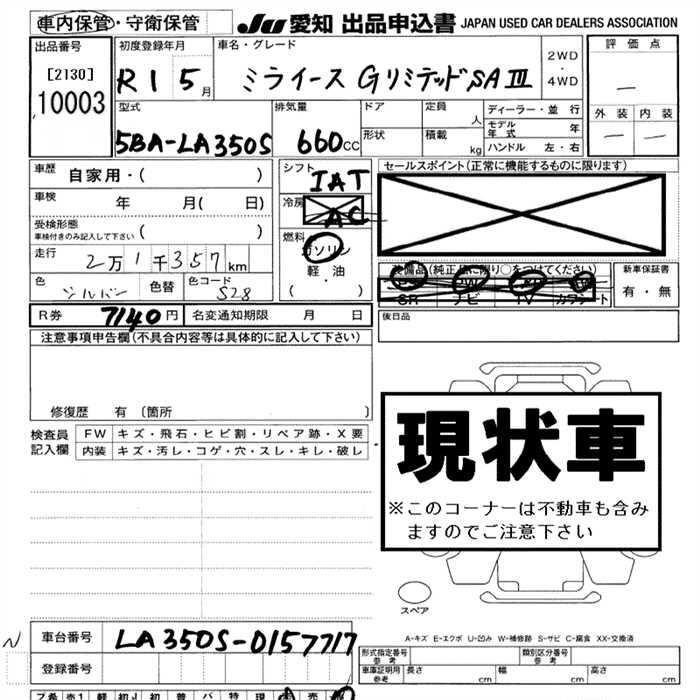 車内保管・守衛保管
JU 愛知 出品申込書 JAPAN USED CAR DEALERS ASSOCIATION
出品番号 初度登録年月 車名・グレード 評価点
[2130]
10003
R1 5月 ミライース GリミテッドSAⅢ 2WD・4WD
—
外装 内装
— —
型式 排気量 ドア 定員 人 ディーラー・並行
モデル年式 年
5BA-LA350S 660cc 形状 積載 kg ハンドル 左・右
車歴 自家用・( )
シフト IAT
セールスポイント(正常に機能するものに限ります)
車検 年 月( 日)
冷房 AC
受検形態 車検付きのみ記入して下さい ( )
燃料 ガソリン・軽油・( )
走行 2万1千357km
装備品(純正品に限り○をつけてください)
SR ナビ TV カワシート
新車保証書
有・無
色 シルバー 色替 色コード S28
R券 7140円 名変通知期限 月 日
後日品
注意事項申告欄(不具合内容等は具体的に記入して下さい)
修復歴 有 〔箇所 〕
検査員記入欄
FW キズ・飛石・ヒビ割・リペア跡・X要
内装 キズ・汚レ・コゲ・穴・スレ・キレ・破レ
現状車
※このコーナーは不動車も含み
ますのでご注意下さい
スペア
A-キズ E-エクボ U-凹み W-補修跡 S-サビ C-腐食 XX-交換済
N 車台番号 LA350S-0157717
登録番号
形式指定番号 参考 類別区分番号 参考
車庫証明用 参考 長さ cm 幅 cm 高さ cm